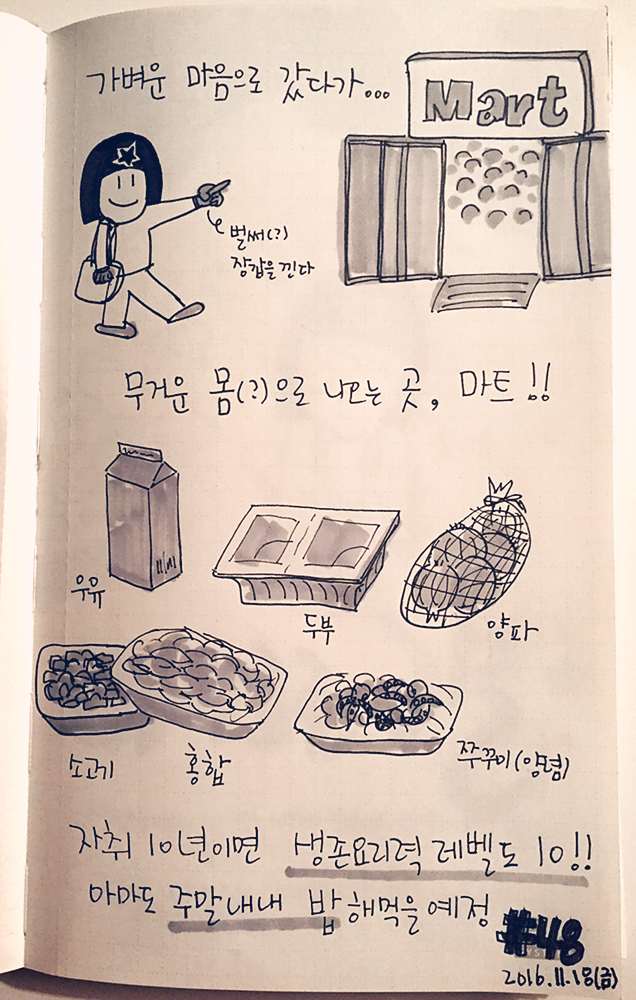 가벼운 마음으로 갔다가...
Mart
벌써(?)
장갑을 낀다
무거운 몸(?)으로 나오는 곳, 마트!!
우유
두부
양파
소고기
홍합
쭈꾸미(양념)
자취 10년이면 생존요리력 레벨도 10!!
아마도 주말내내 밥해먹을 예정
#48
2016.11.18(금)